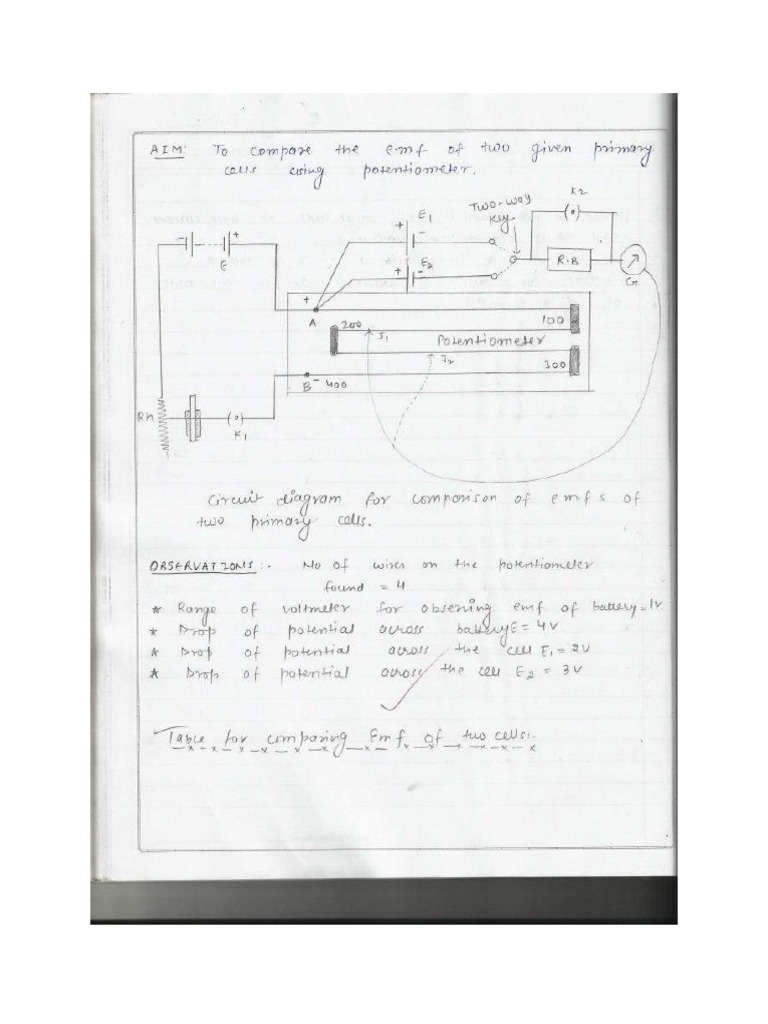 AIM: To compare the e.mf of two given primary
cells using potentiometer.
K2
Two-way
key
E1
+ -
- +
E
E2
+ -
R.B
G
+
A
200
100
J1
Potentiometer
J2
300
B - 400
Rh
K1
Circuit diagram for comparison of e m f s of
two primary cells.
OBSERVATIONS:- No of wires on the potentiometer
found = 4
* Range of voltmeter for observing emf of battery=1V
* Drop of potential across battery E = 4V
* Drop of potential across the cell E1 = 2V
* Drop of potential across the cell E2 = 3V
Table for comparing Emf of two cells:-